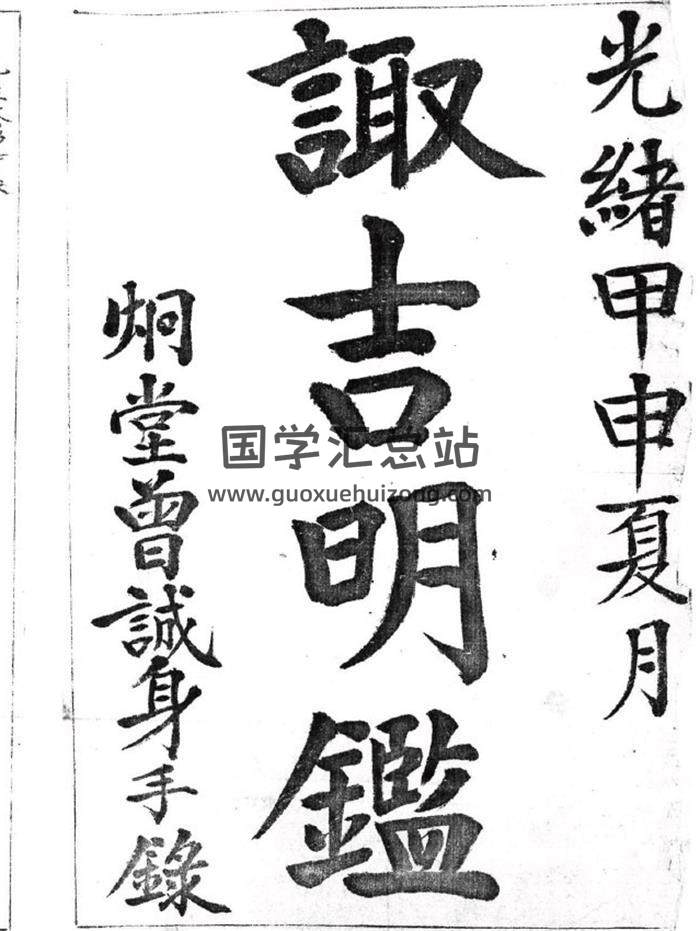 光緒甲申夏月
諏吉明鑑
炯堂曾誠身手錄
国学汇总站
www.guoxuehuizong.com